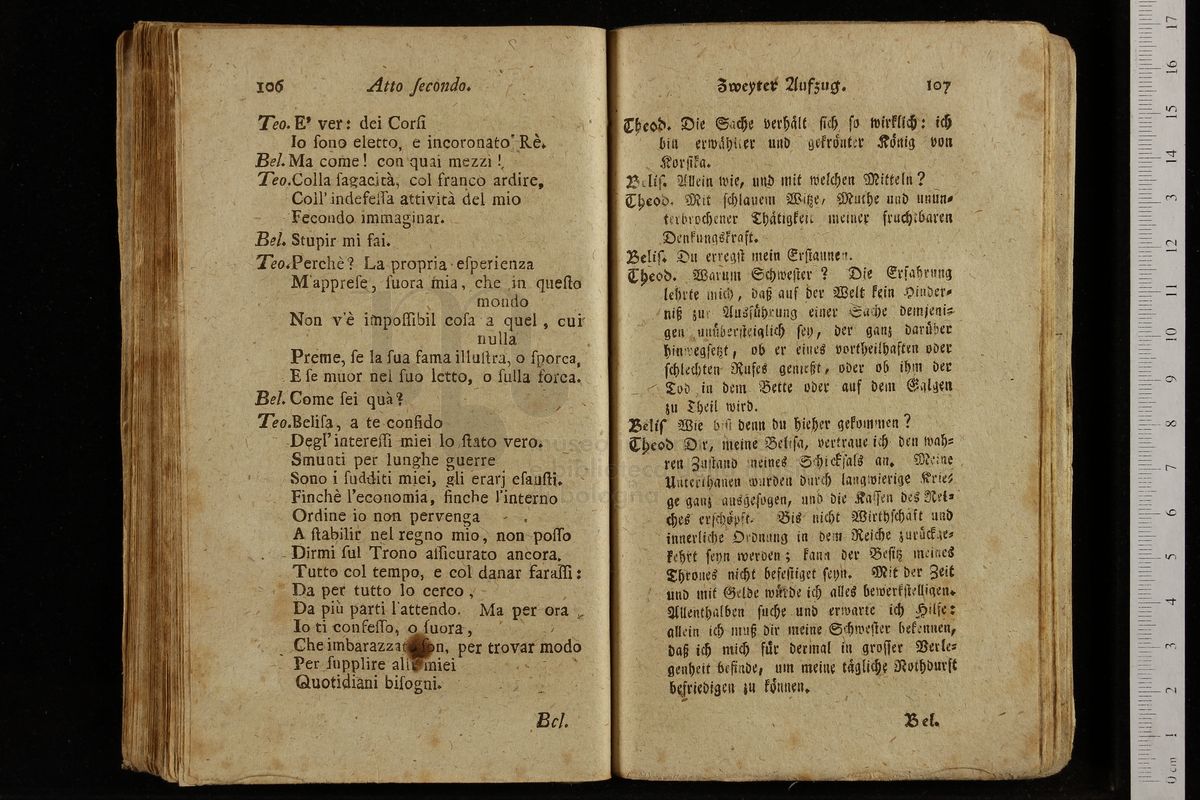 106 Atto ſecondo.
Teo. E' ver: dei Corſi
Io ſono eletto, e incoronato Rè.
Bel. Ma come! con quai mezzi!
Teo. Colla ſagacità, col franco ardire,
Coll' indefeſſa attività del mio
Fecondo immaginar.
Bel. Stupir mi fai.
Teo. Perchè? La propria eſperienza
M'appreſe, ſuora mia, che in queſto
mondo
Non v'è impoſſibil coſa a quel, cui
nulla
Preme, ſe la ſua fama illuſtra, o ſporca,
E ſe muor nel ſuo letto, o ſulla forca.
Bel. Come ſei quà?
Teo. Beliſa, a te confido
Degl' intereſſi miei lo ſtato vero.
Smunti per lunghe guerre
Sono i ſudditi miei, gli erarj eſauſti.
Finchè l'economia, finche l'interno
Ordine io non pervenga
A ſtabilir nel regno mio, non poſſo
Dirmi ſul Trono aſſicurato ancora.
Tutto col tempo, e col danar faraſſi:
Da per tutto lo cerco,
Da più parti l'attendo. Ma per ora
Io ti confeſſo, o ſuora,
Che imbarazzato ſon, per trovar modo
Per ſupplire alli miei
Quotidiani biſogni.
Bel.
Zweyter Aufzug. 107
Theod. Die Sache verhält ſich ſo wirklich: ich
bin erwählter und gekrönter König von
Korſika.
Beliſ. Allein wie, und mit welchen Mitteln?
Theod. Mit ſchlauem Witze, Muthe und unun-
terbrochener Thätigkeit meiner fruchtbaren
Denkungskraft.
Beliſ. Du erregſt mein Erſtaunen.
Theod. Warum Schweſter? Die Erfahrung
lehrte mich, daß auf der Welt kein Hinder-
niß zur Ausführung einer Sache demjeni-
gen unüberſteiglich ſey, der ganz darüber
hinwegſetzt, ob er eines vortheilhaften oder
ſchlechten Rufes genießt, oder ob ihm der
Tod in dem Bette oder auf dem Galgen
zu Theil wird.
Beliſ Wie biſt denn du hieher gekommen?
Theod Dir, meine Beliſa, vertraue ich den wah-
ren Zuſtand meines Schickſals an. Meine
Unterthanen wurden durch langwierige Krie-
ge ganz ausgeſogen, und die Kaſſen des Rei-
ches erſchöpft. Bis nicht Wirthſchaft und
innerliche Ordnung in dem Reiche zurückge-
kehrt ſeyn werden; kann der Beſitz meines
Thrones nicht befeſtiget ſeyn. Mit der Zeit
und mit Gelde würde ich alles bewerkſtelligen.
Allenthalben ſuche und erwarte ich Hilfe:
allein ich muß dir meine Schweſter bekennen,
daß ich mich für dermal in groſſer Verle-
genheit befinde, um meine tägliche Nothdurft
befriedigen zu können.
Bel.
museo
biblioteca
bologna
0 cm 1 2 3 4 5 6 7 8 9 10 11 12 3 14 15 16 17